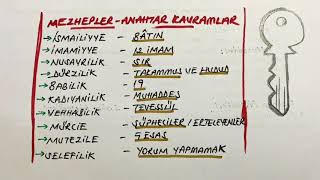 MEZHEPLER - ANAHTAR KAVRAMLAR
→ İSMAİLİYYE - BÂTIN
→ İMAMİYYE - 12 İMAM
→ NUSAYRİLİK - SIR
→ DÜRZİLİK - TAKAMMUS VE HUDUD
→ BABİLİK - 19
→ KADIYANİLİK - MUHADDES
→ VEHHABİLİK - TEVESSÜL
→ MÜRCİE - ŞÜPHECİLER / ERTELEYENLER
→ MUTEZİLE - 5 ESAS
→ SELEFİLİK - YORUM YAPMAMAK